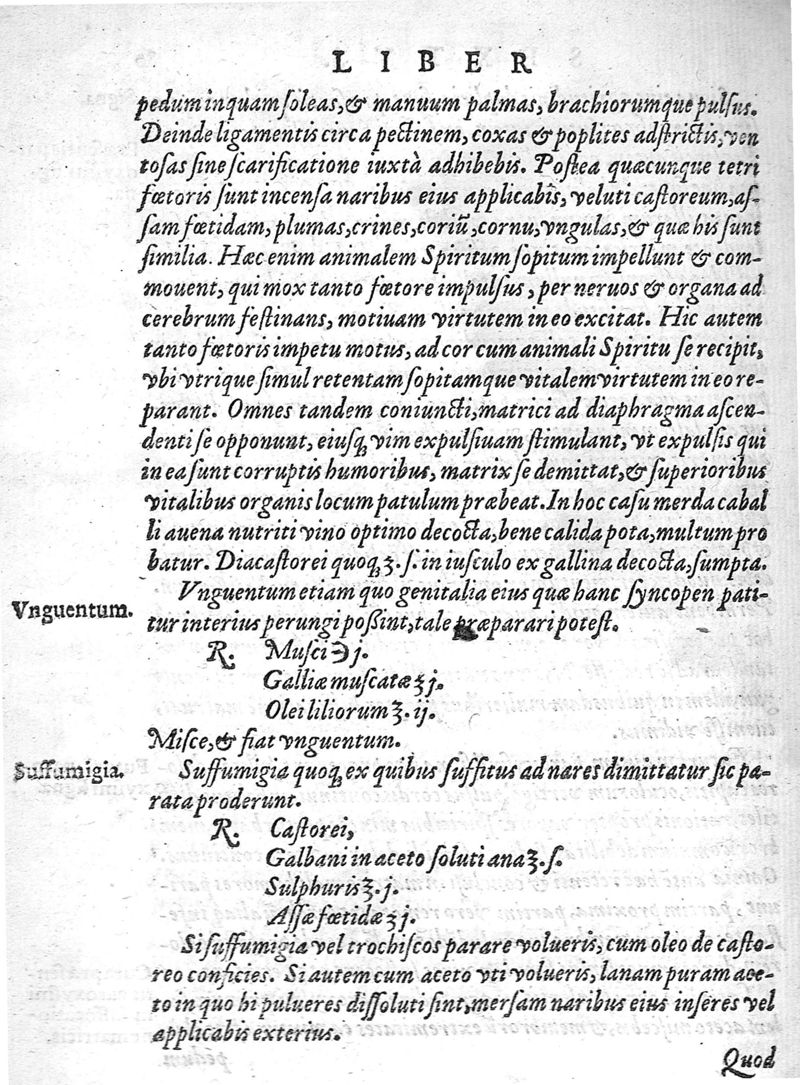 LIBER
pedum inquam ſoleas, & manuum palmas, brachiorumque pulſus.
Deinde ligamentis circa pectinem, coxas & poplites adſtrictis, ven
toſas ſine ſcarificatione iuxtà adhibebis. Poſtea quæcunque tetri
fœtoris ſunt incenſa naribus eius applicabis, veluti caſtoreum, aſ-
ſam fœtidam, plumas, crines, coriū, cornu, vngulas, & quæ his ſunt
ſimilia. Hæc enim animalem Spiritum ſopitum impellunt & com-
mouent, qui mox tanto fœtore impulſus, per neruos & organa ad
cerebrum feſtinans, motiuam virtutem in eo excitat. Hic autem
tanto fœtoris impetu motus, ad cor cum animali Spiritu ſe recipit,
vbi vtrique ſimul retentam ſopitamque vitalem virtutem in eo re-
parant. Omnes tandem coniuncti, matrici ad diaphragma aſcen-
denti ſe opponunt, eiuſq; vim expulſiuam ſtimulant, vt expulſis qui
in ea ſunt corruptis humoribus, matrix ſe demittat, & ſuperioribus
vitalibus organis locum patulum præbeat. In hoc caſu merda cabal
li auena nutriti vino optimo decocta, bene calida pota, multum pro
batur. Diacaſtorei quoq; ʒ. ſ. in iuſculo ex gallina decocta, ſumpta.
Vnguentum.
Vnguentum etiam quo genitalia eius quæ hanc ſyncopen pati-
tur interius perungi poßint, tale præparari poteſt.
℞. Muſci ℈ j.
Galliæ muſcatæ ʒ j.
Olei liliorum ℥. ij.
Miſce, & fiat vnguentum.
Suffumigia.
Suffumigia quoq; ex quibus ſuffitus ad nares dimittatur ſic pa-
rata proderunt.
℞. Caſtorei,
Galbani in aceto ſoluti ana ℥. ſ.
Sulphuris ℥. j.
Aſſæ fœtidæ ʒ j.
Si ſuffumigia vel trochiſcos parare volueris, cum oleo de caſto-
reo conficies. Si autem cum aceto vti volueris, lanam puram ace-
to in quo hi pulueres diſſoluti ſint, merſam naribus eius inſeres vel
applicabis exterius.
Quod